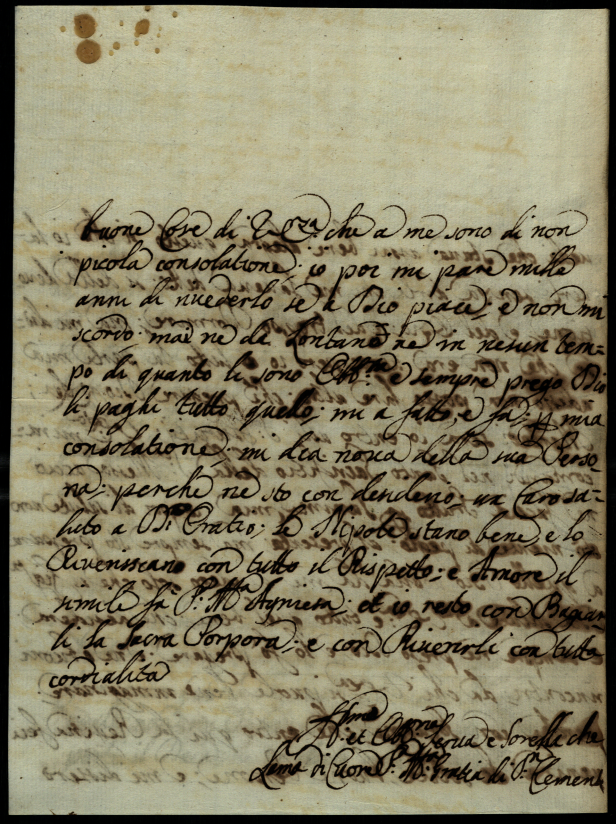 buone Cose di V. Emza che a me sono di non
picola consolatione: io poi mi pare mille
anni di rivederlo se a Dio piace; e non mi
scordo: mai ne da Lontane ne in nesun tem=
po di quanto li sono Obb.ta e sempre prego Dio
li paghi tutto quello; mi a fatto, e fa; p mia
consolatione; mi dia nova della sua Perso
na: perche ne sto con desiderio; un Caro sa=
luto a Dn Oratio; le Nipote stano bene, e lo
Riveriscano con tutto il Rispetto; e Amore il
simile fa Sr Ma Agniesa; et io resto con Bagiar
li la Sacra Porpora; e con Riverirli con tutta
cordialita
et Obb.ma Serva e Sorella che
Lama di Cuore Sr Ma Gratia di Sn Clemente